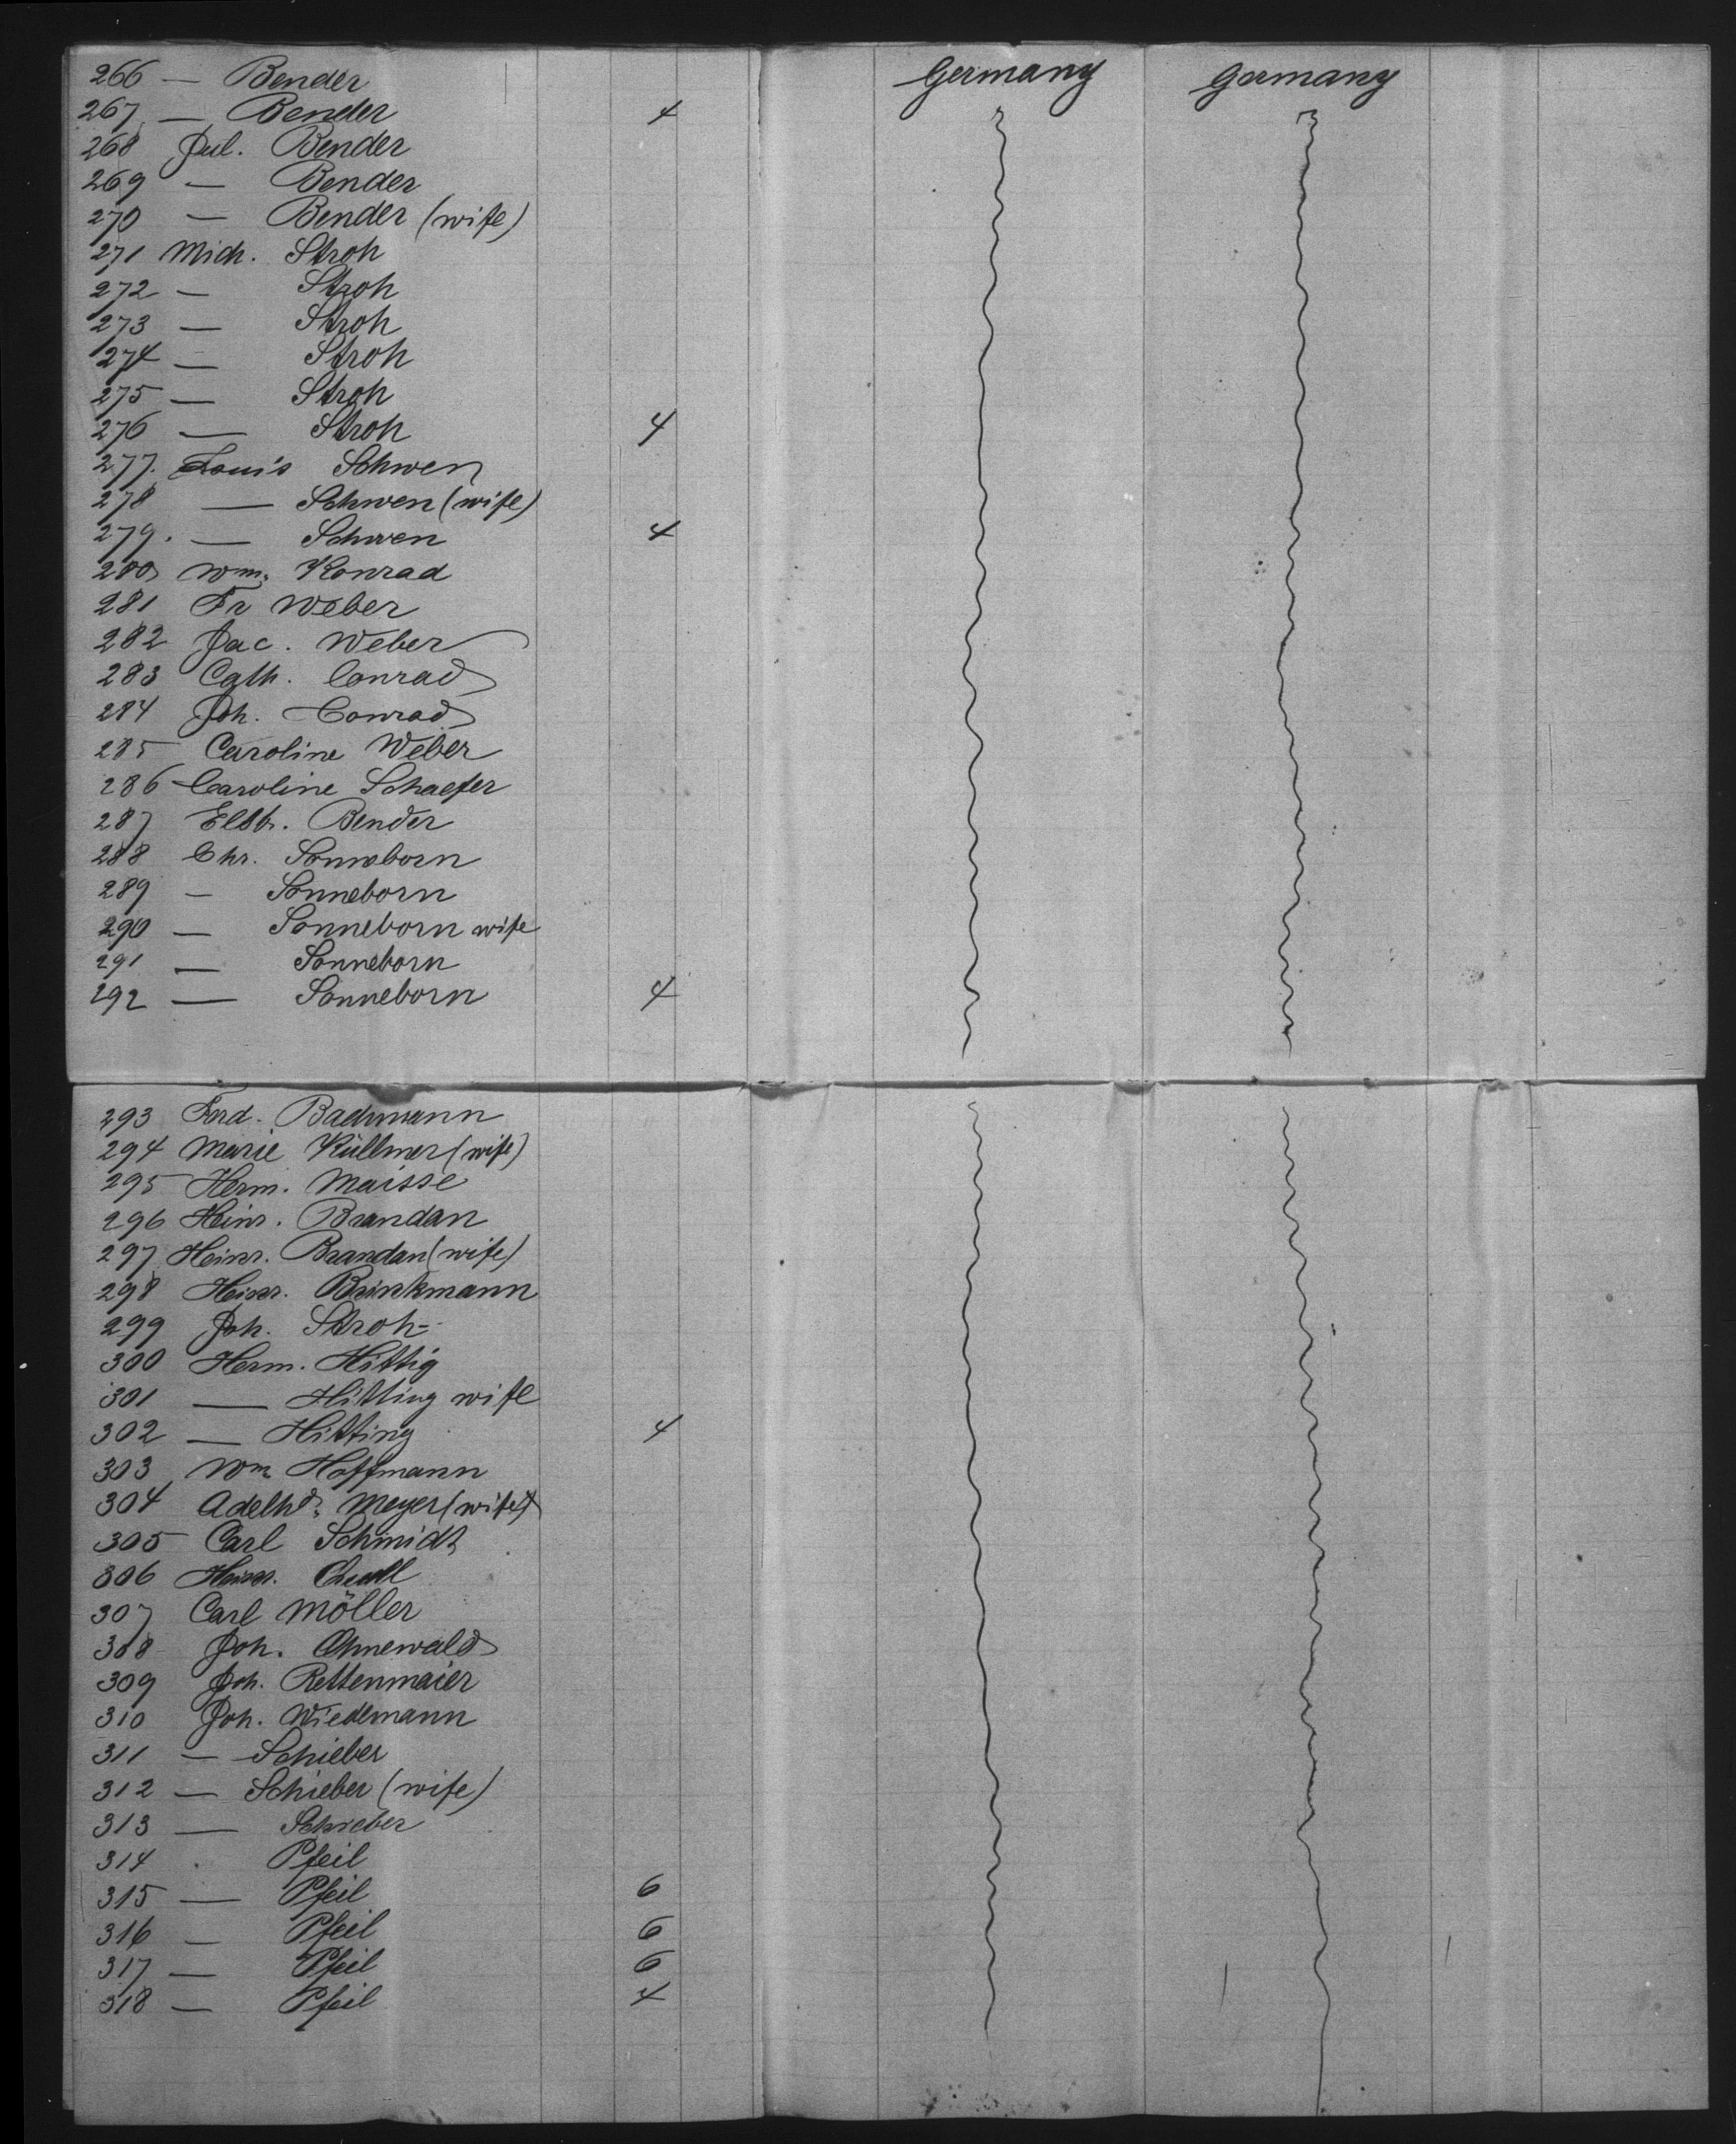 266 — Bender Germany Germany
267 — Bender 4
268 Jul. Bender
269 — Bender
270 — Bender (wife)
271 Mich. Stroh
272 — Stroh
273 — Stroh
274 — Stroh
275 — Stroh
276 — Stroh 4
277. Louis Schwen
278 — Schwen (wife)
279. — Schwen 4
280 Wm. Konrad
281 Fr Weber
282 Jac. Weber
283 Cath. Conrad
284 Joh. Conrad
285 Caroline Weber
286 Caroline Schaefer
287 Elsb. Bender
288 Chr. Sonneborn
289 — Sonneborn
290 — Sonneborn wife
291 — Sonneborn
292 — Sonneborn 4
293 Ferd. Bachmann
294 Marie Küllmer (wife)
295 Herm. Maisse
296 Heinr. Brandan
297 Heinr. Brandan (wife)
298 Heinr. Brinkmann
299 Joh. Stroh
300 Herm. Hittig
301 — Hitting wife
302 — Hitting 4
303 Wm Hoffmann
304 Adelhd. Meyer (wife)
305 Carl Schmidt
306 Heinr.
307 Carl Möller
308 Joh. Ohnewald
309 Joh. Rettenmaier
310 Joh. Wiedemann
311 — Schieber
312 — Schieber (wife)
313 — Schieber
314 Pfeil
315 — Pfeil 6
316 — Pfeil 6
317 — Pfeil 6
318 — Pfeil 4